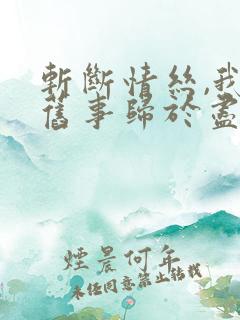 斬斷情絲,我
舊事歸於盡
煙晨何年
未经同意禁止转载